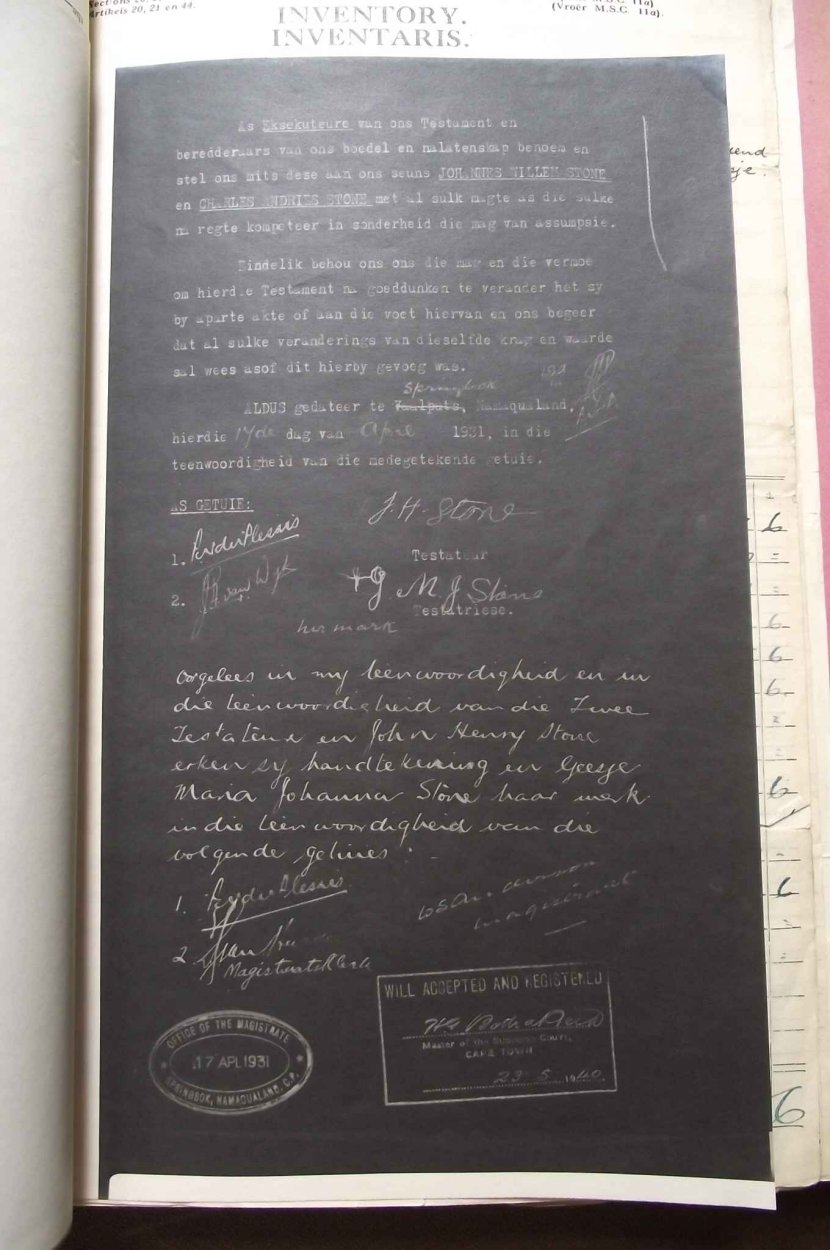 Artikels 20, 21 en 44.
INVENTORY.
INVENTARIS.
(Vroër M.S.C. 11a).
As Eksekuteure van ons Testament en
beredderaars van ons boedel en nalatenskap benoem en
stel ons mits dese aan ons seuns JOHANNES WILLEM STONE
en CHARLES ANDRIES STONE met al sulk magte as die sulke
na regte kompeteer in sonderheid die mag van assumpsie.
Eindelik behou ons ons die mag en die vermoe
om hierdie Testament na goeddunken te verander het sy
by aparte akte of aan die voet hiervan en ons begeer
dat al sulke veranderings van dieselfde krag en waarde
sal wees asof dit hierby gevoeg was.
Springbok
ALDUS gedateer te Vaalputs, Namaqualand,
hierdie 17de dag van April 1931, in die
teenwoordigheid van die medegetekende getuie.
AS GETUIE:
J. H. Stone
1.
Testateur
2.
G M J Stone
Testatriese.
her mark
Oorgelees in my teenwoordigheid en in
die teenwoordigheid van die Twee
en John Henry Stone
erken sy handtekening en Geesje
Maria Johanna Stone haar merk
in die teenwoordigheid van die
volgende getuies:-
1.
2.
Magistrate's Clerk
WILL ACCEPTED AND REGISTERED
Master of the Supreme Court,
CAPE TOWN
23·5·1940
OFFICE OF THE MAGISTRATE
17 APL 1931
SPRINGBOK, NAMAQUALAND, C.P.